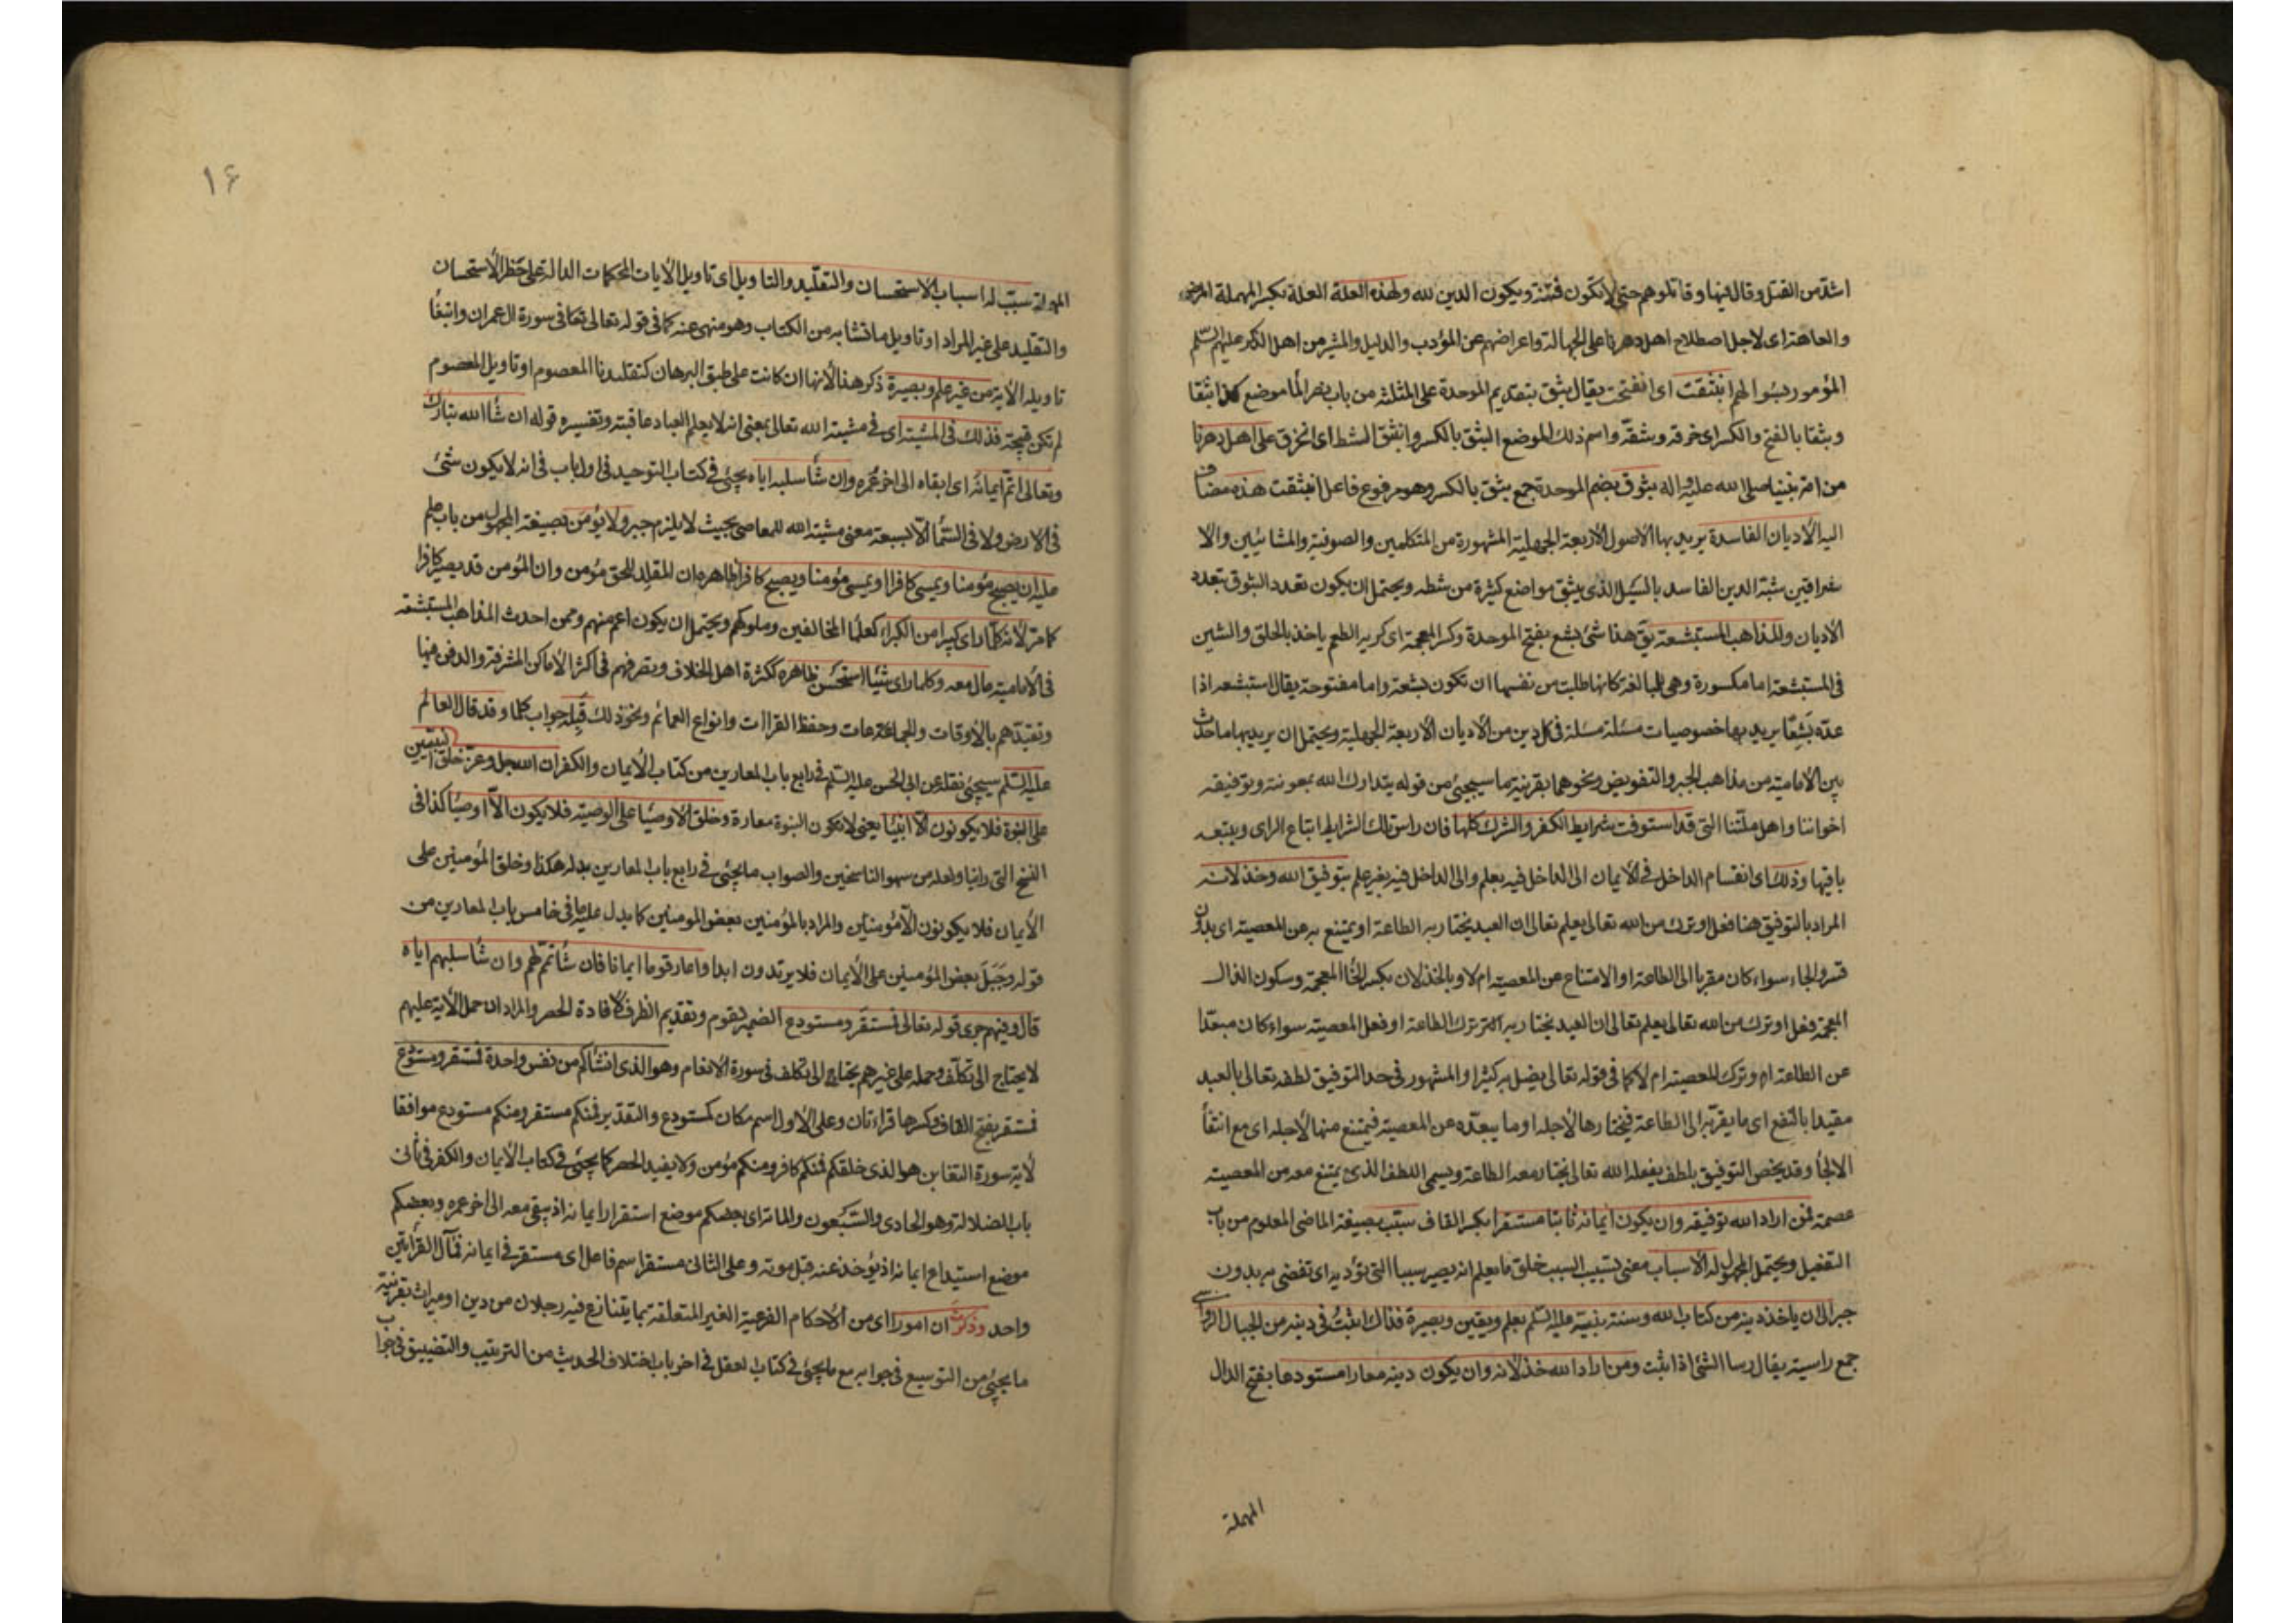 اشد من القتل وقال فيها وقاتلوهم حتى لا تكون فتنة ويكون الدين لله ولهذه العلة العلة بكسر المهملة المرض
والعاهة اى لاجل اصطلاح اهل دهرنا على الجهالة واعراضهم عن المؤدب والدليل والمشير من اهل الذكر عليهم السّلم
المؤمور بسؤالهم انبثقت اى انفتحت يقال بثق بتقديم الموحدة على المثلثة من باب نصر الماء موضع كذا بثقا
وبثقا بالفتح والكسر اى خرقه وشقّه واسم ذلك الموضع البثق بالكسر وانبثق الشط اى انخرق على اهل دهرنا
من امة نبينا صلى الله عليه واله بثوق بضم الموحدة جمع بثق بالكسر وهو مرفوع فاعل انبثقت هذه مضاف
اليه الأديان الفاسدة يريد بها الاصول الأربعة الجهلية المشهورة من المتكلمين والصوفية والمشائيين والا
شراقيين شبّه الدين الفاسد بالسيل الذى يبثق مواضع كثيرة من شطه ويحتمل ان يكون تعدد البثوق بتعدد
الأديان وللمذاهب المستبشعة يق هذا شئ بشع بفتح الموحدة وكسر المعجمة اى كريه الطعم ياخذ بالحلق والشين
فى المستبشعة اما مكسورة وهى للمبالغة كانها طلبت من نفسها ان تكون بشعة واما مفتوحة يقال استبشعه اذا
عدّه بَشِعًا يريد بها خصوصيات مسئلة مسئلة فى كل دين من الاديان الأربعة الجهلية ويحتمل ان يريد بها ما حدث
بين الأمامية من مذاهب الجبر والتفويض ونحوهما بقرينة ما سيجيئ من قوله يتدارك الله بمعونته وتوفيقه
اخواننا واهل ملّتنا التى قد استوفت شرايط الكفر والشرك كلها فان راس تلك الشرايط اتباع الراى ويتبعه
باقيها وذلك اى انقسام الداخل فى الأيمان الى الداخل فيه بعلم والى الداخل فيه بغير علم بتوفيق الله وخذلانه
المراد بالتوفيق هنا فعل او ترك من الله تعالى يعلم تعالى ان العبد يختار به الطاعة او يمتنع به عن المعصية اى بدون
قسر والجاء سواء كان مقربا الى الطاعة او الامتناع عن المعصية ام لا وبالخذلان بكسر الخاء المعجمة وسكون الذال
المعجمة فعل او ترك من الله تعالى يعلم تعالى ان العبد يختار به ترك الطاعة او فعل المعصية سواء كان مبعّدا
عن الطاعة او ترك المعصية ام لا كما فى قوله تعالى يضل به كثيرا والمشهور فى حد التوفيق لطفه تعالى بالعبد
مقيدا بالنفع اى ما يقرّبه الى الطاعة فيختارها لأجله او ما يبعّده عن المعصية فيمتنع منها لأجله اى مع انتفاء
الالجأ وقد يخص التوفيق بلطف يفعله الله تعالى يختار معه الطاعة ويسمى اللطف الذى يمتنع معه من المعصية
عصمة فمن اراد الله توفيقه وان يكون ايمانه ثابتا مستقرا بكسر القاف سبّب بصيغة الماضى المعلوم من باب
التفعيل ويحتمل المجهول له الأسباب معنى تسبيب السبب خلق ما يعلم انه يصير سببا التى تؤديه اى تفضى به بدون
جبر الى ان ياخذ دينه من كتاب الله وسنة نبيه عليه السّلم بعلم ويقين وبصيرة فذاك اثبتُ فى دينه من الجبال الرواسى
جمع راسية يقال رسا الشئ اذا ثبت ومن اراد الله خذلانه وان يكون دينه معارا مستودعا بفتح الدال
المهملة
١۶
المهملة سبّب له اسباب الاستحسان والتقليد والتاويل اى تاويل الأيات المحكمات الدالة على حظر الأستحسان
والتقليد على غير المراد او تاويل ما تشابه من الكتاب وهو منهى عنه كما فى قوله تعالى تعا فى سورة ال عمران وابتغاء
تاويله الأية من غير علم وبصيرة ذكر هذا لأنها ان كانت على طبق البرهان كتقليدنا المعصوم او تاويل المعصوم
لم تكن قبيحة فذلك فى المشية اى فى مشية الله تعالى بمعنى انه لا يعلم العباد عاقبته وتفسيره قوله ان شاء الله تبارك
وتعالى اتمّ ايمانه اى ابقاه الى اخر عمره وان شاء سلبه اياه يجيئ فى كتاب التوحيد فى اول باب فى انه لا يكون شئ
فى الأرض ولا فى السّماء الّا بسبعة معنى مشية الله للمعاصى بحيث لا يلزم جبر ولا يؤمن بصيغة المجهول من باب علم
عليه ان يصبح مؤمنا ويمسى كافرا او يمسى مؤمنا ويصبح كافرا ظاهره ان المقلد للحق مؤمن وان المؤمن قد يصير كافرا
كما مرّ لأنه كلّما راى كبيرا من الكبراء كعلماء المخالفين وملوكهم ويحتمل ان يكون اعم منهم وممن احدث المذاهب المستبشعة
فى الأمامية مال معه وكلما راى شيئا استحسن ظاهره ككثرة اهل الخلاف وتصرفهم فى اكثر الأماكن المشرفة والدفن فيها
وتقيدهم بالأوقات والجماعات وحفظ القراات وانواع العمائم ونحو ذلك قَبِلَه جواب كلما وقد قال العالم
عليه السّلم سيجيئ نقله عن ابى الحسن عليه السّلم فى رابع باب المعارين من كتاب الأيمان والكفر ان الله جل وعز خلق النبيين
على النبوة فلا يكونون الا انبياء يعنى لا تكون النبوة معارة وخلق الأوصياء على الوصية فلا يكون الّا اوصياء كذا فى
النسخ التى راينا ولعله من سهو الناسخين والصواب ما يجيئ فى رابع باب المعارين بدله هكذا وخلق المؤمنين على
الأيمان فلا يكونون الّا مؤمنين والمراد بالمؤمنين بعض المومنين كما يدل عليه ما فى خامس باب المعارين من
قوله وجَبَلَ بعض المؤمنين على الأيمان فلا يرتدون ابدا واعار قوما ايمانا فان شاء تممّ لهم وان شاء سلبهم اياه
قال وفيهم جرى قوله تعالى فمستقر ومستودع الضمير لقوم وتقديم الظرف لأفادة الحصر والمراد ان حمل الأية عليهم
لا يحتاج الى تكلّف وحمله على غيرهم يحتاج الى تكلف فى سورة الأنعام وهو الذى انشأكم من نفس واحدة فمستقر ومستودع
فمستقر بفتح القاف وكسرها قراءتان وعلى الأول اسم مكان كمستودع والتقدير فمنكم مستقر ومنكم مستودع موافقا
لأية سورة التغابن هو الذى خلقكم فمنكم كافر ومنكم مؤمن ولا يفيد الحصر كما يجيئ فى كتاب الأيمان والكفر فى ثانى
باب الضلالة وهو الحادى والسّبعون والمائة اى بعضكم موضع استقرار ايمانه اذ يبقى معه الى اخر عمره وبعضكم
موضع استيداع ايمانه اذ يؤخذ عنه قبل موته وعلى الثانى مستقر اسم فاعل اى مستقر فى ايمانه فمآل القرائتين
واحد وذكرتَ ان امورا اى من الأحكام الفرعية الغير المتعلقة بما يتنازع فيه رجلان من دين او ميراث بقرينة
ما يجيئ من التوسيع فى جوابه مع ما يجيئ فى كتاب العقل فى اخر باب اختلاف الحديث من الترتيب والتضييق فى جواب